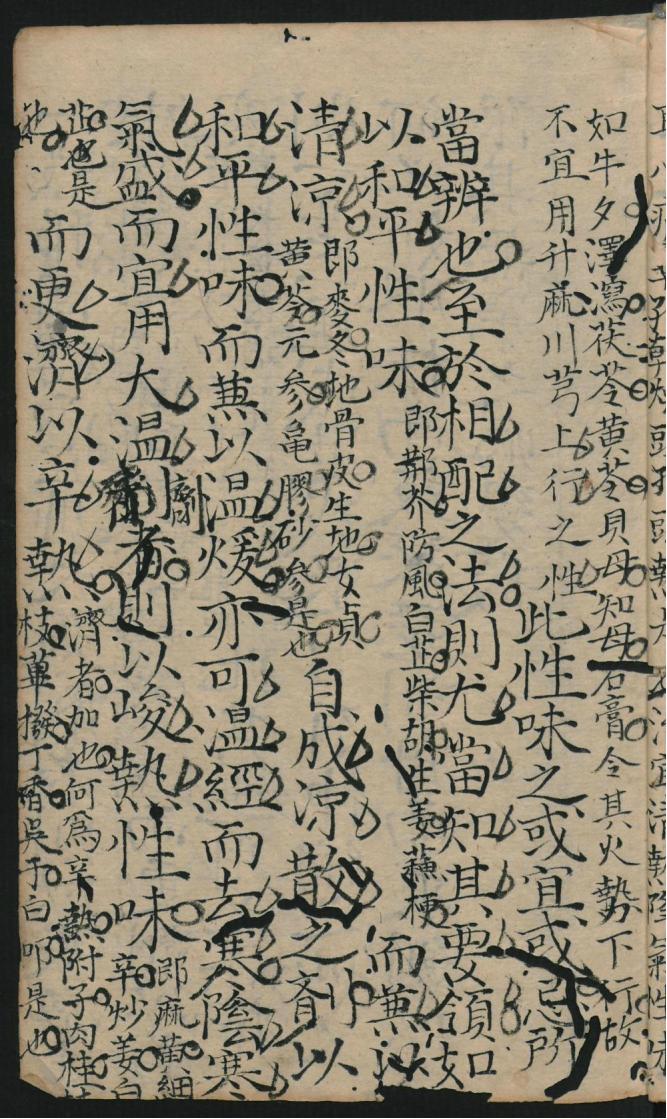 如牛夕澤瀉茯苓黄苓貝母知母石膏令其火勢下行故
不宜用升麻川芎上行之性
此性味之或宜或忌所
當辨也至於相配之法則尤當知其要領如
以和平性味
即荆芥防風白芷柴胡生姜蘓梗
而兼以
清凉
即麥冬地骨皮生地女貞
黄苓元参亀膠砂参是也
自成凉散之剂以
和平性味而兼以温煖亦可温經而去寒陰寒
氣盛而宜用大温剤者則以峻热性味
即麻黄細
辛炒姜白
芷也是
也
而更濟以辛热
濟者加也何爲辛热附子肉桂
热枝薑撥丁香吳于白叩是也